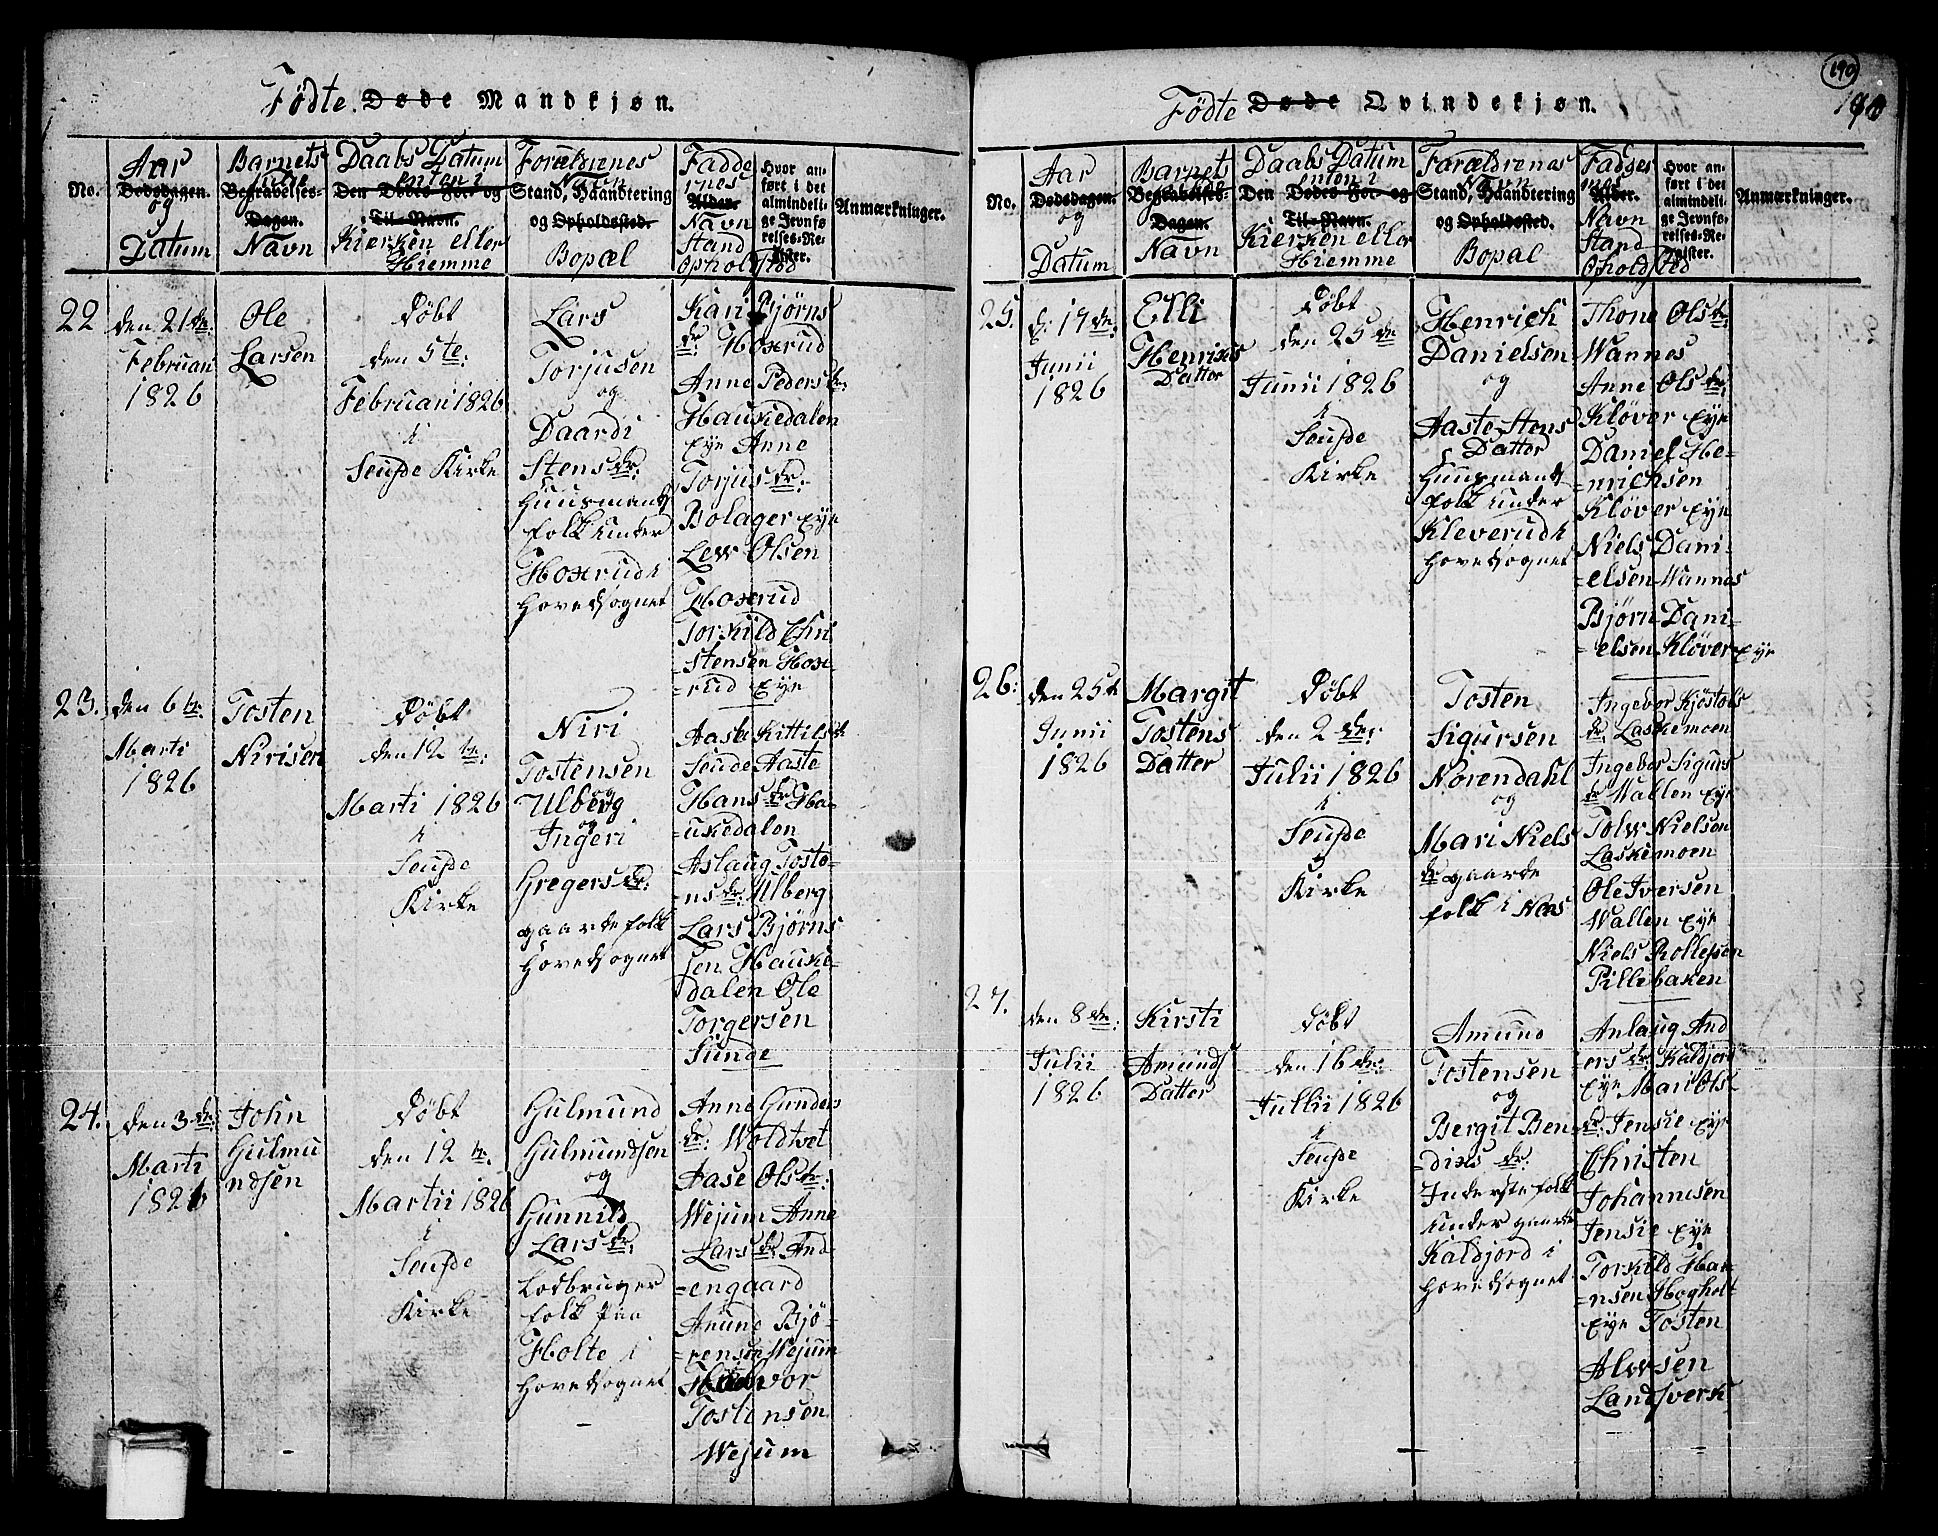 Fødte. Døde Mandkjøn.
No.
Aar
Dødsdagen.
og
Datum
Barnets
Begravelses-
Dagen.
Navn
Daabs Datum
enten i
Den Dødes For og
Til-Navn.
Kierken eller
Hiemme
Forældrenes
Navn
Stand, Haandtering
og Opholdssted.
Bopæl
Fadde
rnes
Alder.
Navn
Stand
Ophold Sted
Hvor an-
ført i det
almindeli-
ge Jevnfø-
relses-Re-
gister.
Anmærkninger.
22
den 21de
Februari
1826
Ole
Larsen
Døbt
den 5te
Februari 1826
i
Seufde Kirke
Lars
Torjusen
og
Daardi
Stensdr:
Huusmands
folk under
Hoxrud i
Hovedsognet
Kari Bjørns
dr: Hoxrud
Anne Pedersdr:
Haukedalen
Eye Anne
Torjusdr:
Bolager Eye
Lew Olsen
Hoxrud
Torkild Chri
stensen Hox-
=rud Eye
23.
den 6te
Marti
1826
Tosten
Nirisen
Døbt
den 12te:
Marti 1826
i
Seufde
Kirke
Niri
Tostensen
Ulberg
og
Ingeri
Gregersdr:
gaardefolk
Hovedsognet
Aaste Kittilsdr
Seude Aaste
Hansdr Ha-
=ukedalen
Aslaug Toste-
=nsdr Ulberg
Lars Bjørns
sen Hauke-
dalen Ole
Torgersen
Sunde
24.
den 3de
Marti
1826
John
Gulmu
ndsen
Døbt
den 12te.
Martii 1826
i
Seufde
Kirke
Gulmund
Gulmundsen
og
Gunnild
Larsdr.
Lodbruger
folk paa
Holte i
Hovedsognet
Anne Gunders
dr: Woldtvet
Aase Olsdr:
Wejum Anne
Larsdr And-
=engaard
Anund Bjø-
=rensen Wejum
Halvor
Tostensen
Wejum
190
190
Fødte Døde Qvindekjøn.
No.
Aar
Dødsdagen.
og
Datum
Barnet
Begravelses-
Dagen.
Navn
Daabs Datum
enten i
Den Dødes For og
Til-Navn.
Kierken eller
Hiemme
Forældrenes
Navn
Stand, Haandtering
og Opholdssted.
Bopal
Alder.
Navn
Stand
Ophold Sted
Hvor an-
ført i det
almindeli-
ge Jevnfø-
relses-Re-
gister.
Anmærkninger.
25.
d: 17de:
Junii
1826
Elli
Henriks
Datter
Døbt
den 25de
Junii 1826
i
Seufde
Kirke
Henrich
Danielsen
og
Aaste Stens
Datter
Huusmands
folk under
Kleverud i
Hovedsognet
Thone Olsdr:
Wannes
Anne Olsdr:
Kløver Eye
Daniel He-
=nrichsen
Kløver Eye
Niels Dani-
=elsen Wannes
Bjørn Dani-
=elsen Kløver Eye
26:
den 25de
Junii
1826
Margit
Tostens
Datter
Døbt
den 2den
Julii 1826
i
Seufde
Kirke
Tosten
Sigursen
Norendahl
og
Mari Niels
dr gaarde
folk i Næs
Ingebor Kjøstols
dr. Laskemoen
Ingebor Sigurs
dr Wallen Eye
Tolw Nielsen
Laskemoen
Ole Iversen
Wallen Eye
Niels Rollefsen
Pillebaken
27.
den 8de:
Julii
1826
Kirsti
Amunds
Datter
Døbt
den 16de:
Jullii 1826
i
Seufde
Kirke
Amund
Tostensen
og
Bergit Ben
=diks dr:
Inderstefolk
under gaarde
Kaldjord i
Hovedsognet
Anlaug And
=ersdr: Kaldjord
Eye Mari Ols
dr: Jensie Eye
Christen
Johannesen
Jensie Eye
Torkild Han-
=nsen Hogholt
Eye Tosten
Alwsen
Landsverk